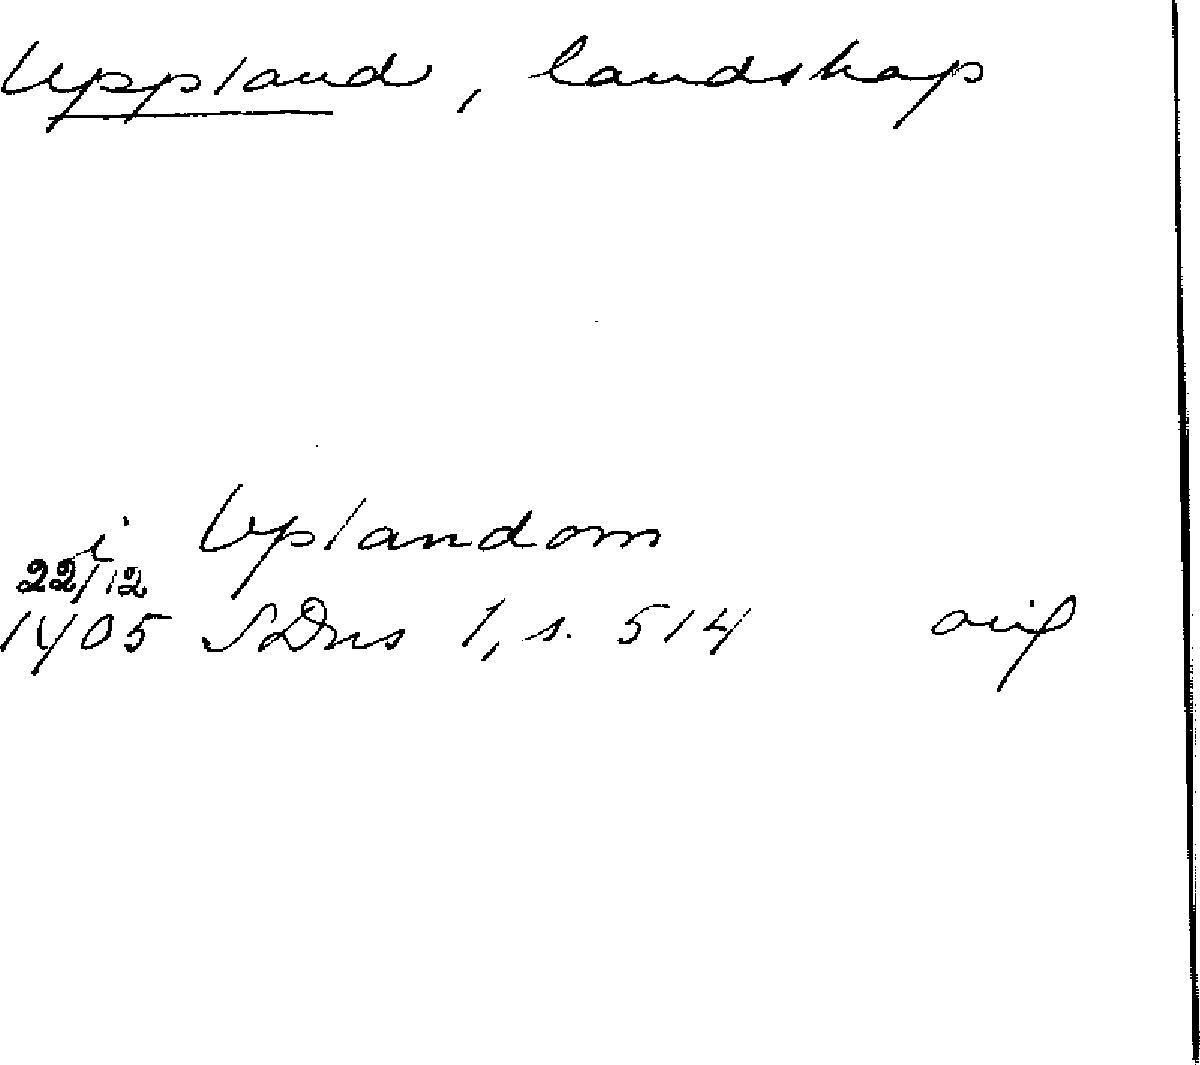 Uppland, landskap
i Uplandom
22/12
1405 SDns 1, s. 514 or